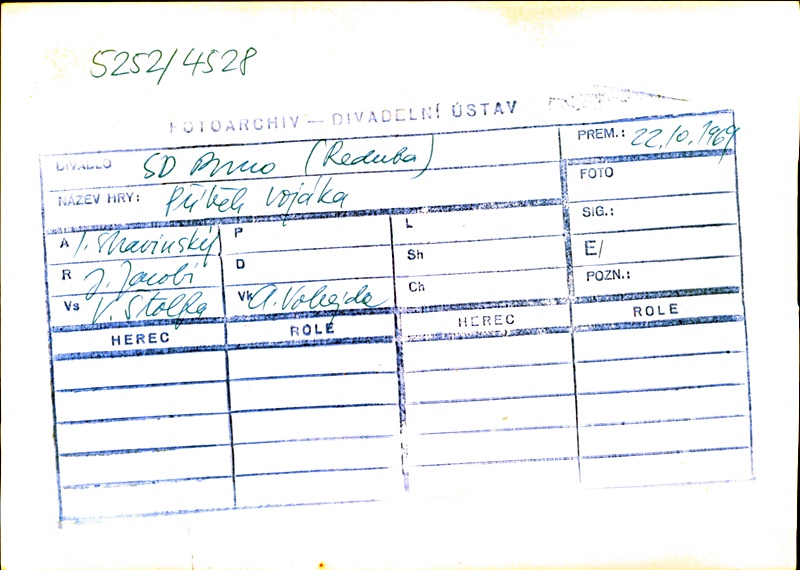 5252/4528
FOTOARCHIV — DIVADELNÍ ÚSTAV
DIVADLO SD Brno (Reduta)
PREM.: 22.10.1969
NÁZEV HRY: Příběh vojáka
FOTO
A I. Stravinský P L
SIG.:
R J. Jacobi D Sh
E/
Vs V. Štolfa Vk A. Vobejda Ch
POZN.:
HEREC ROLE HEREC ROLE